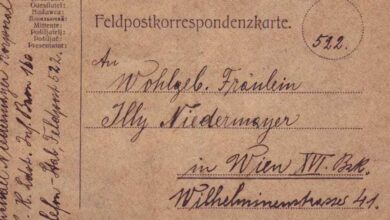 Odesílatel:
Feldpostkorrespondenzkarte.
522.
An
Wohlgeb. Fräulein
Illy Niedermayer
in Wien XVI. Bzk.
Wilhelminenstrasse 41.
Niedermayer
K. K. Ldst. Inf. Baon 160
Telefon-Abt. Feldpost 522.